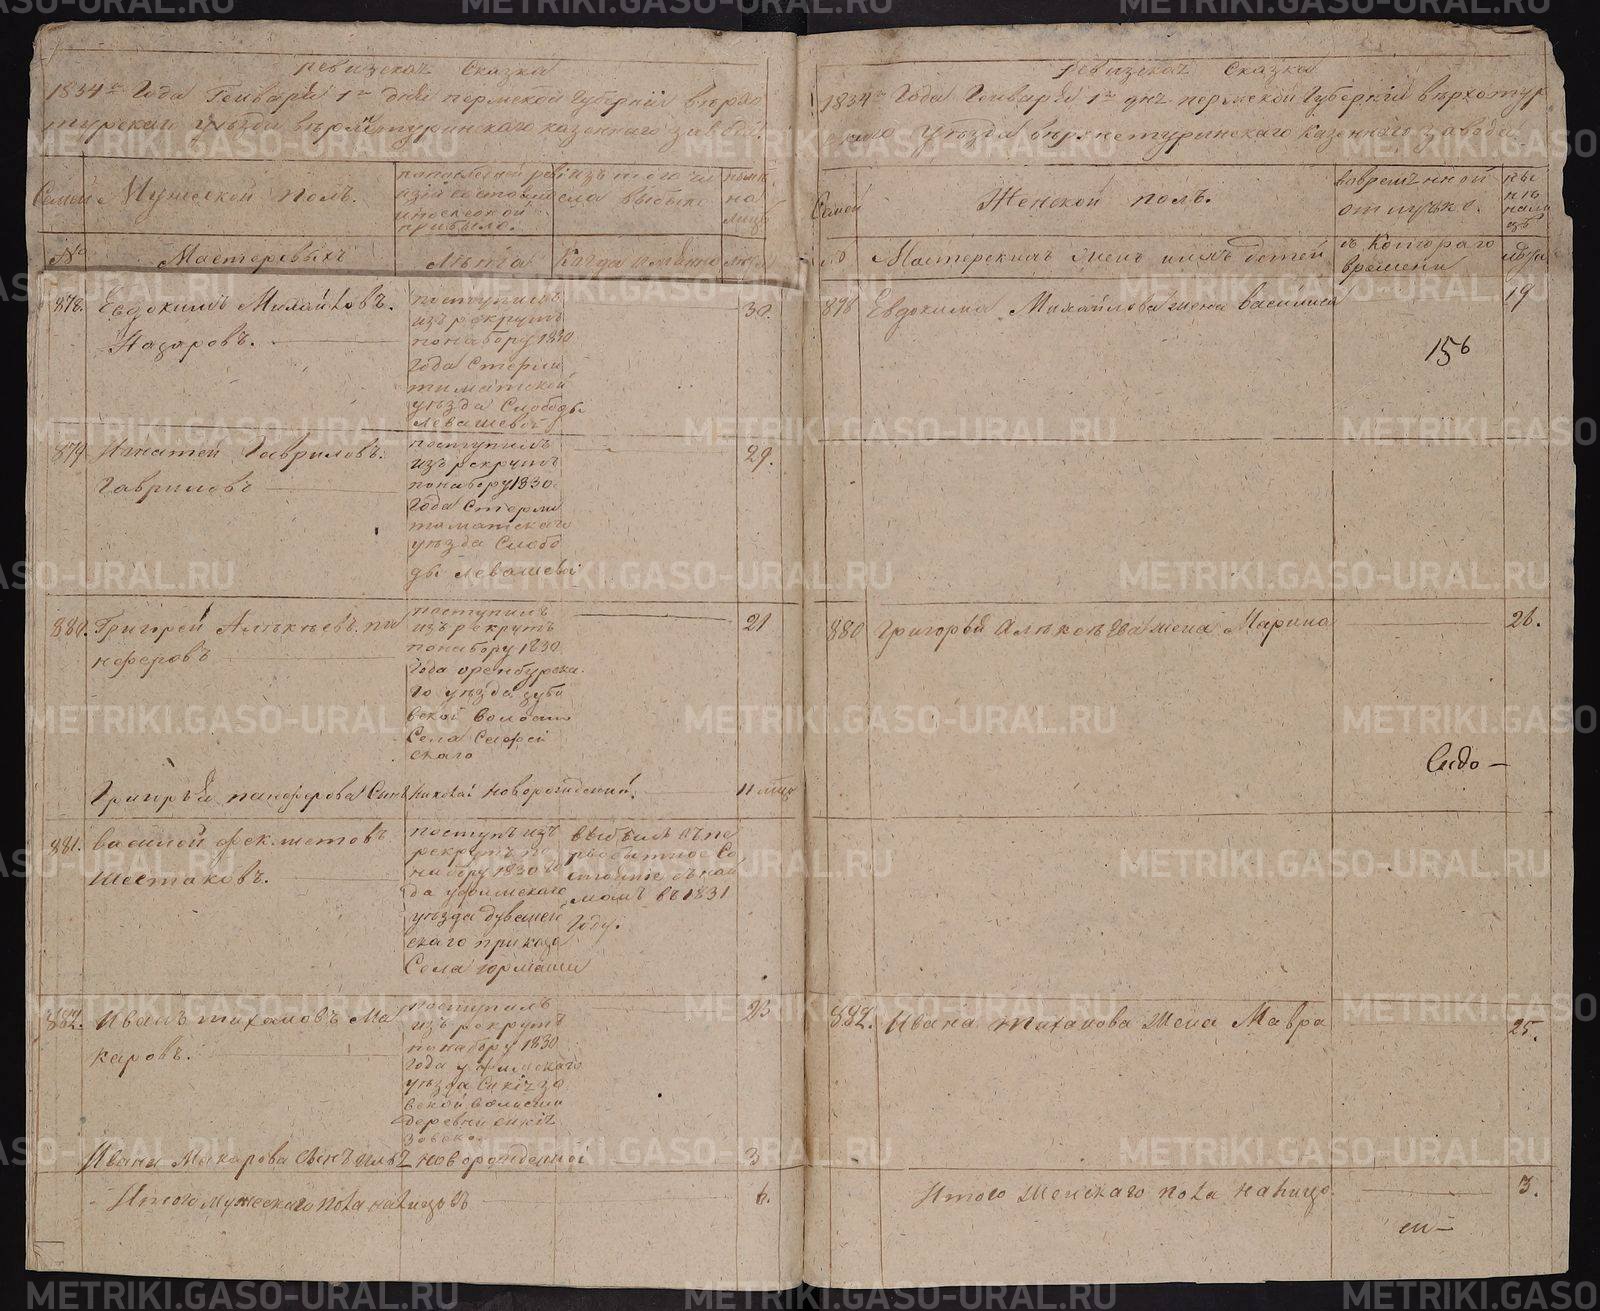 ревизская сказка
1834го Года Генваря 1го дня пермской Губернии верхо
турского уезда верхнетуринского казенного завода
Семьи
Мужеской полъ.
по последней реви
зии состояло
и после оной
прибыло.
изъ того чи
сла выбыло
ныне
на
лицо
№
Мастеровыхъ
Лѣта
Когда именно
лѣта
878.
Евдокимъ Михайловъ.
Назаровъ.
поступилъ
изъ рекрутъ
по набору 1830
года Стерли
таматской
уѣзда Слободы
Левашевой
30.
879
Игнатей Гавриловъ.
Гавриловъ
поступилъ
изъ рекрутъ
по набору 1830.
Года Стерли
таматскаго
уѣзда Слобо
ды Левашевой
29.
880.
Григорей Алѣкѣевъ. па
нферовъ
поступилъ
изъ рекрутъ
по набору 1830
Года оренбурска
го уѣзда зубо
вской волости
Села Софей
скаго
21
Григорья панферова Сынъ Николай новорожденный.
11 мцо
881.
василей фек.
Шестаковъ.
поступ изъ
рекрутъ по
набору 1830 го
да уфимскаго
уѣзда дуваней
скаго приказа
Села юрмаши
выбылъ въ пе
рвобытное Со
стояние
въ 1831
Году.
882.
Иванъ тихановъ Ма
каровъ.
поступилъ
изъ рекрутъ
по набору 1830
года уфимскаго
уѣзда
вской волости
деревни
23
Ивана Макарова Сынъ новорожденной
3
Итого мужескаго пола налицо
6.
ревизская Сказка
1834го Года Генваря 1го дня пермской Губернии верхотур
ского уезда верхнетуринского казенного завода
Семьи
Женской полъ.
во временной
отлучке.
ны
нѣ
нали
цо
№
Мастерскихъ жены и ихъ детей
съ Котораго
времени
лѣта
878
Евдокима Михайлова жена василиса
19
156
880
Григорья Алѣкѣева жена Марина
26.
Сидо-
882.
Ивана тиханова жена Мавра
25.
Итого женскаго пола налицо.
3.